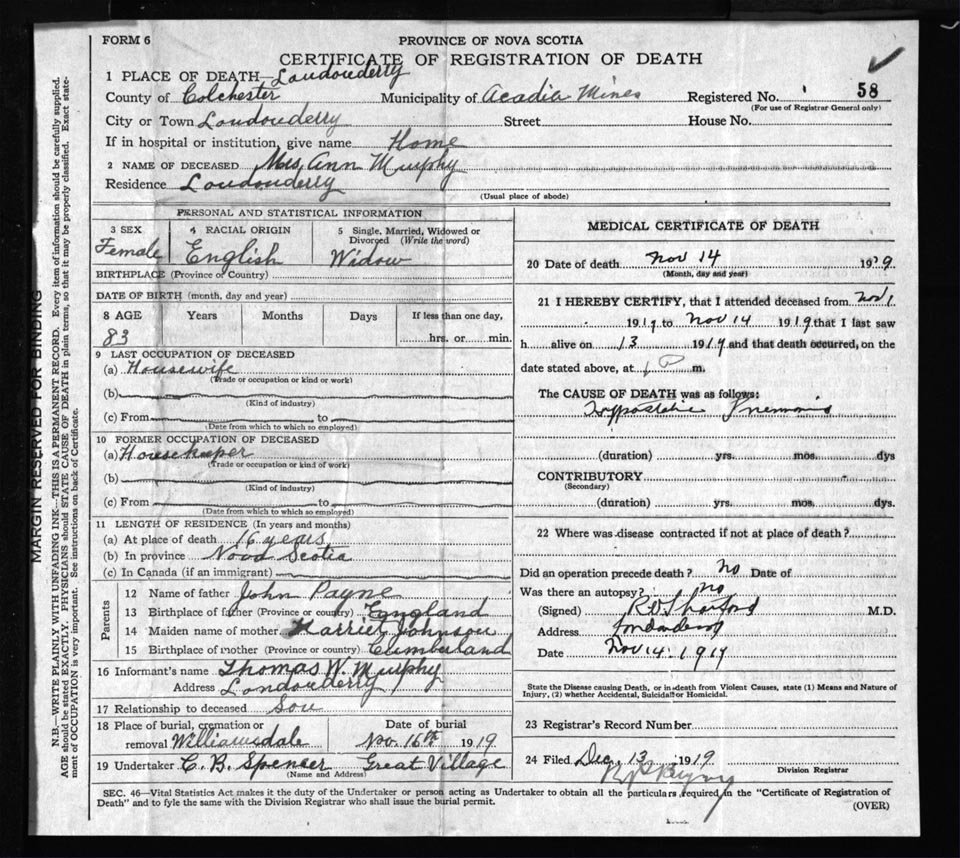 FORM 6
PROVINCE OF NOVA SCOTIA
CERTIFICATE OF REGISTRATION OF DEATH
1 PLACE OF DEATH—Londonderry
County of Colchester Municipality of Acadia Mines Registered No. 58
(For use of Registrar General only)
City or Town Londonderry Street House No.
If in hospital or institution, give name Home
2 NAME OF DECEASED Mrs Ann Murphy
Residence Londonderry
(Usual place of abode)
PERSONAL AND STATISTICAL INFORMATION
3 SEX 4 RACIAL ORIGIN 5 Single, Married, Widowed or Divorced (Write the word)
Female English Widow
BIRTHPLACE (Province or Country)
DATE OF BIRTH (month, day and year)
8 AGE Years Months Days If less than one day,
83 hrs. or min.
9 LAST OCCUPATION OF DECEASED
(a) Housewife
(Trade or occupation or kind or work)
(b)
(Kind of industry)
(c) From to
(Date from which to which so employed)
10 FORMER OCCUPATION OF DECEASED
(a) Housekeeper
(Trade or occupation or kind of work)
(b)
(Kind of industry)
(c) From to
(Date from which to which so employed)
11 LENGTH OF RESIDENCE (In years and months)
(a) At place of death 16 years
(b) In province Nova Scotia
(c) In Canada (if an immigrant)
Parents
12 Name of father John Payne
13 Birthplace of father (Province or country) England
14 Maiden name of mother Harriet Johnson
15 Birthplace of mother (Province or country) Cumberland
16 Informant's name Thomas W. Murphy
Address Londonderry
17 Relationship to deceased Son
18 Place of burial, cremation or Date of burial
removal Williamsdale Nov. 16th 1919
19 Undertaker C. B. Spencer Great Village
(Name and Address)
MEDICAL CERTIFICATE OF DEATH
20 Date of death Nov 14 1919
(Month, day and year)
21 I HEREBY CERTIFY, that I attended deceased from Nov 1
1919 to Nov 14 1919 that I last saw
h alive on 13 1919 and that death occurred, on the
date stated above, at 1 P m.
The CAUSE OF DEATH was as follows:
Hypostatic Pneumonia
(duration) yrs. mos. dys
CONTRIBUTORY
(Secondary)
(duration) yrs. mos. dys.
22 Where was disease contracted if not at place of death?
Did an operation precede death? No Date of
Was there an autopsy? no
(Signed) M.D.
Address Londonderry
Date Nov 14 1919
State the Disease causing Death, or in death from Violent Causes, state (1) Means and Nature of
Injury, (2) whether Accidental, Suicidal or Homicidal.
23 Registrar's Record Number
24 Filed Dec 13 1919
Division Registrar
SEC. 46—Vital Statistics Act makes it the duty of the Undertaker or person acting as Undertaker to obtain all the particulars required in the "Certificate of Registration of
Death" and to fyle the same with the Division Registrar who shall issue the burial permit.
(OVER)
MARGIN RESERVED FOR BINDING
N.B.—WRITE PLAINLY WITH UNFADING INK—THIS IS A PERMANENT RECORD. Every item of information should be carefully supplied.
AGE should be stated EXACTLY. PHYSICIANS should STATE CAUSE OF DEATH in plain terms, so that it may be properly classified. Exact state-
ment of OCCUPATION is very important. See instructions on back of Certificate.